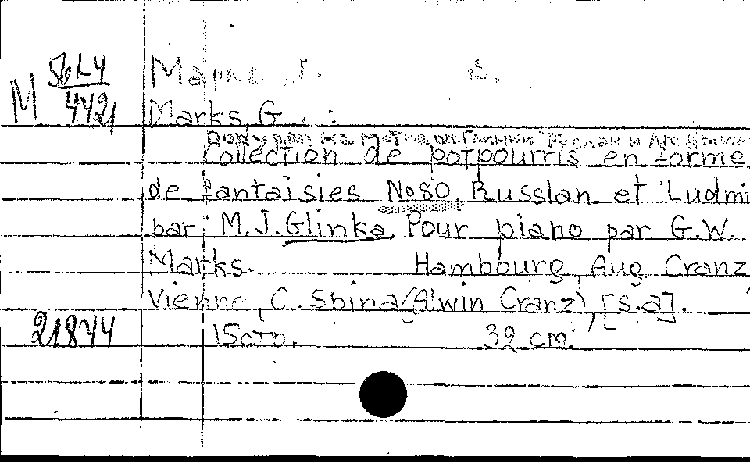 M 4421
Marks G.
Collection de potpourris en forme
de Fantaisies No80. Russlan et Ludmi
par M.J.Glinka. Pour piano par G.W.
Marks. Hambourg, Aug Cranz
Vienne, C. Spina (Alwin Cranz), [s.a].
21844 15стр. 32 cm.